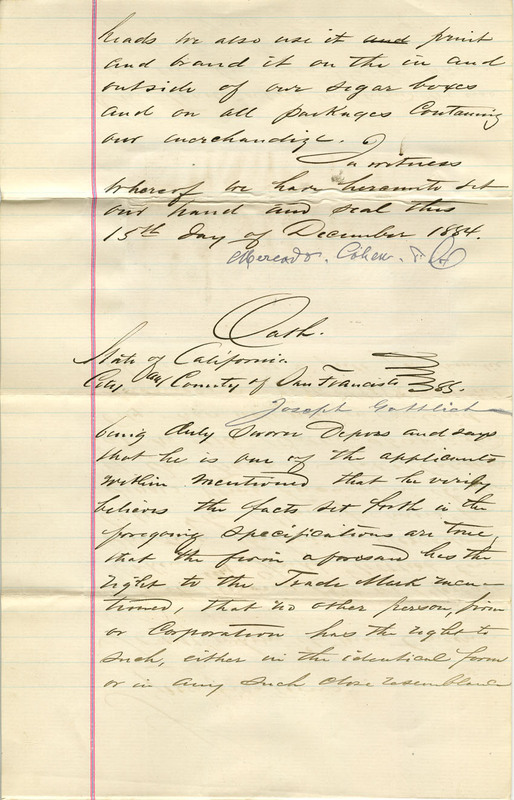 heads we also use it and print
and brand it on the in and
outside of our segar boxes
and on all packages Containing
our merchandize. In witness
whereof we have hereunto set
our hand and seal this
15th day of December 1884.
Mercado. Cohen. & Co
Oath.
State of California
City and County of San Francisco } SS.
Joseph Gottlieb
being duly Sworn Deposes and says
that he is one of the applicants
within mentioned that he verily
believes the facts set forth in the
foregoing specifications are true,
that the firm aforesaid has the
right to the Trade Mark men-
tioned, that no other person, firm
or Corporation has the right to
such, either in the identical form
or in any such close resemblance